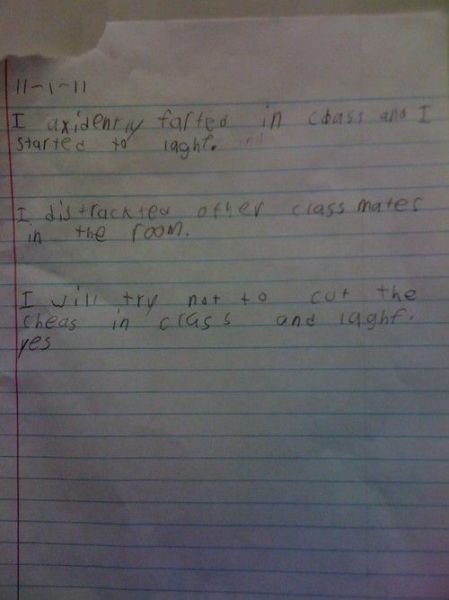 11-1-11
I axidently farted in cbass and I
started to laght.
I distrackted other class mates
in the room.
I will try not to cut the
cheas in class and laght.
yes